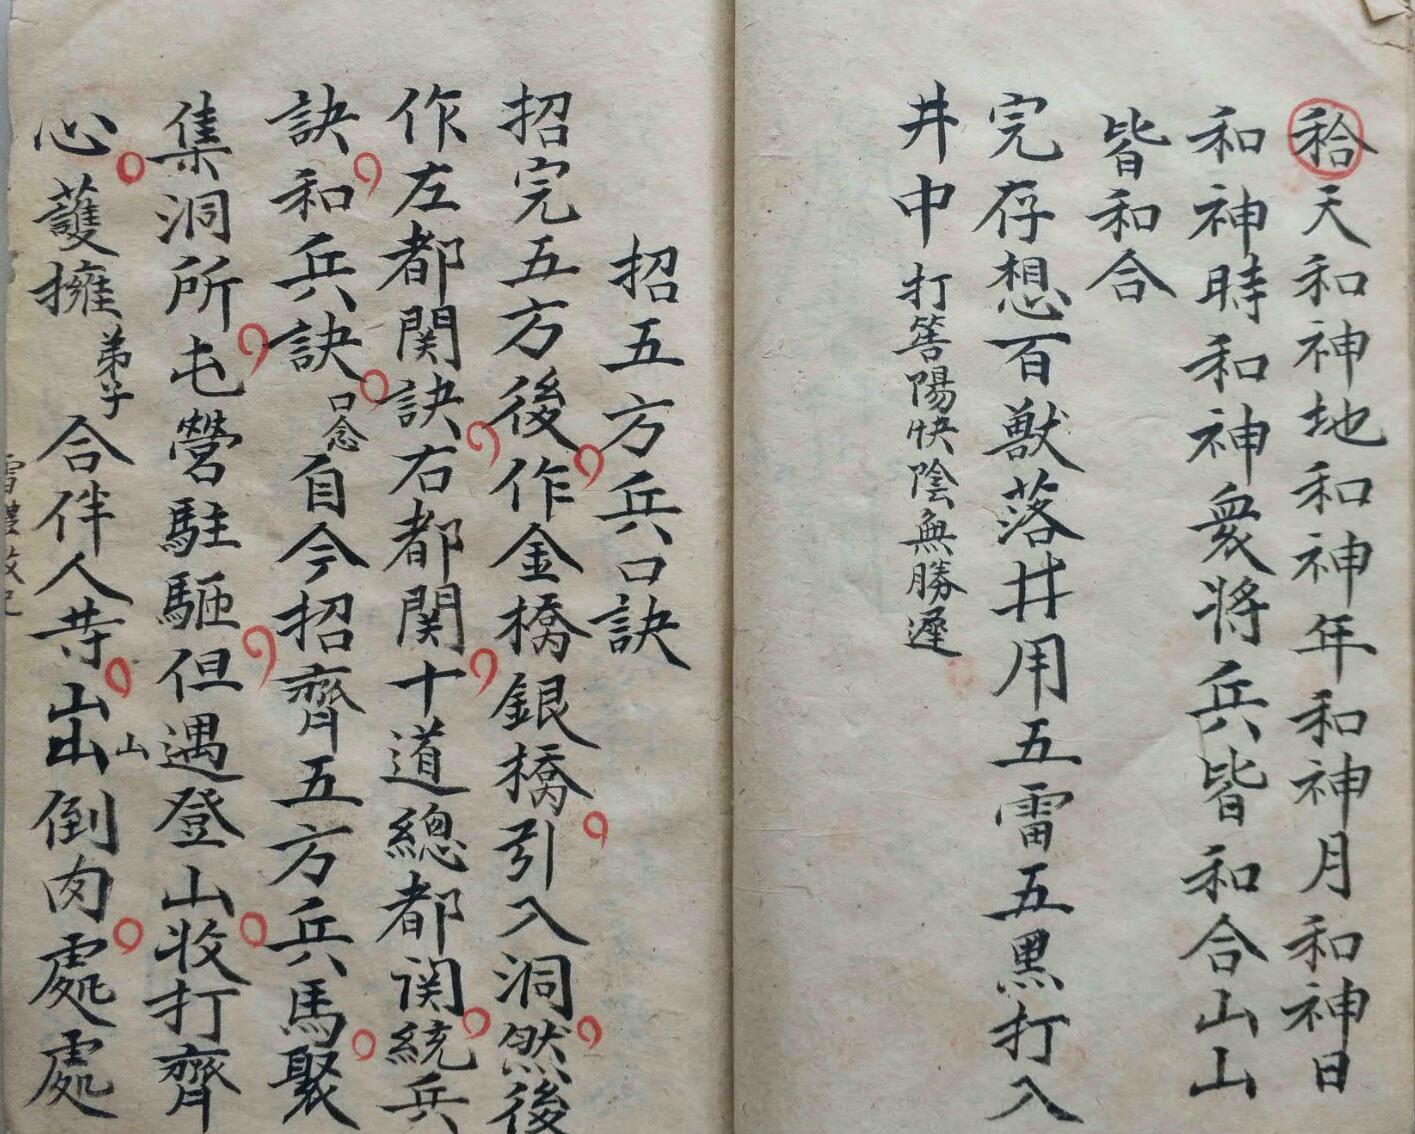 和合天和神地和神年和神月和神日
和神時和神衆將兵皆和合山山
皆和合
完存想百獸落井用五雷五黑打入
井中 打筶陽快陰無勝遲
招五方兵口訣
招完五方後作金橋銀橋引入洞然後
作左都関訣右都関十道總都関統兵
訣和兵訣口念自今招齊五方兵馬聚
集洞所屯營駐驅但遇登山收打齊
心護擁弟子合伴人等山山山倒肉處處